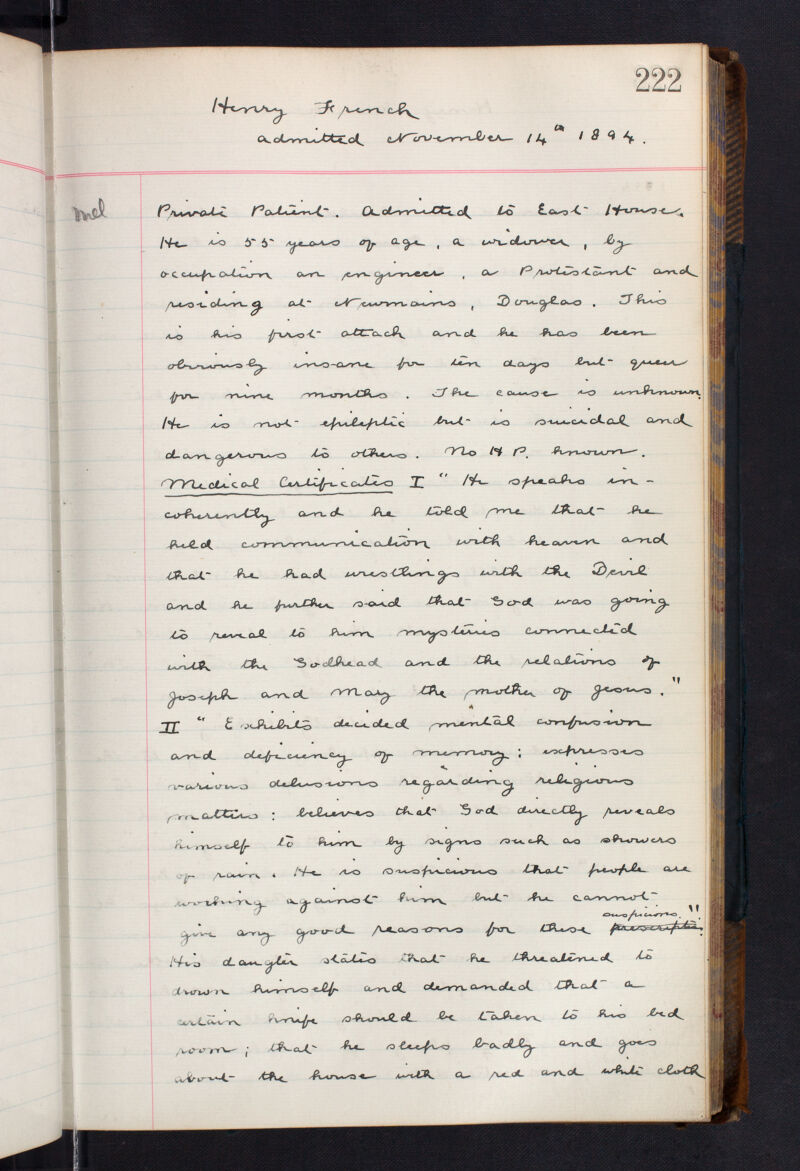 222
Henry French
admitted November 14th 1894.
Mel
Private Patient. Admitted to East House.
He is 55 years of age, a widower, by
occupation an engineer, a Protestant and
residing at Newmains, Douglas. This
is his first attack and he has been
obviously insane for ten days but queer
for nine months. The cause is unknown.
He is not epileptic but is suicidal and
dangerous to others. No H.P. known.
Medical Certificates I " He speaks in-
coherently and he told me that he
held communication with heaven and
that he had wrestlings with the Devil
and he further said that God was going
to reveal to him mysteries connected
with the Godhead and the relations of
Joseph and Mary the mother of Jesus."
II " Exhibits decided mental confusion
and deficiency of memory: expresses
various delusions regarding religious
matters: believes that God directly reveals
himself to him by signs such as showers
of rain. He is suspicious that people are
working against him but he cannot
give any good reasons for these suspicions."
His daugter states that he threatened to
drown himself and demanded that a
certain knife should be taken to his bed
room; that he sleeps badly and goes
about the house with a red and white cloth